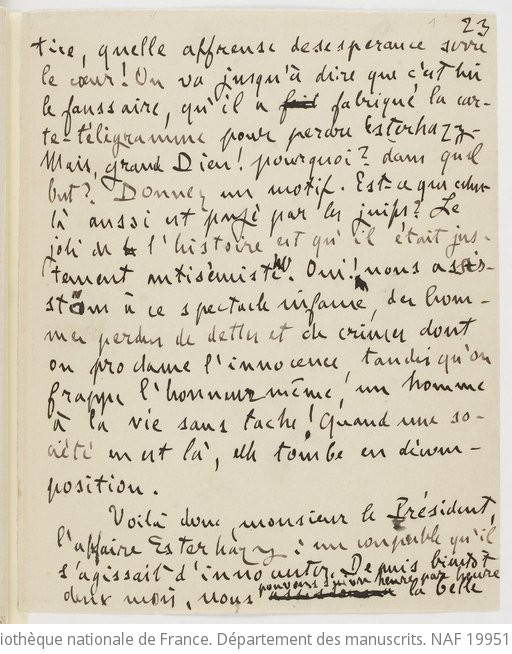 23
tice, quelle affreuse desesperance serre
le cœur! On va jusqu'à dire que c'est lui
le faussaire, qu'il a fabriqué la car-
te-télégramme pour perdre Esterhazy.
Mais, grand Dieu! pourquoi? dans quel
but? Donnez un motif. Est-ce que celui-
là aussi est payé par les juifs? Le
joli de l'histoire est qu'il était jus-
tement antisémite. Oui! nous assis-
stons à ce spectacle infame, des hom-
mes perdus de dettes et de crimes dont
on proclame l'innocence, tandis qu'on
frappe l'honneur même, un homme
à la vie sans tache! Quand une so-
ciété en est là, elle tombe en décom-
position.
Voilà donc, monsieur le Président,
l'affaire Esterhazy: un coupable qu'il
s'agissait d'innocenter. Depuis bientôt
pouvons suivre heure par heure
deux mois, nous la belle
iothèque nationale de France. Département des manuscrits. NAF 19951